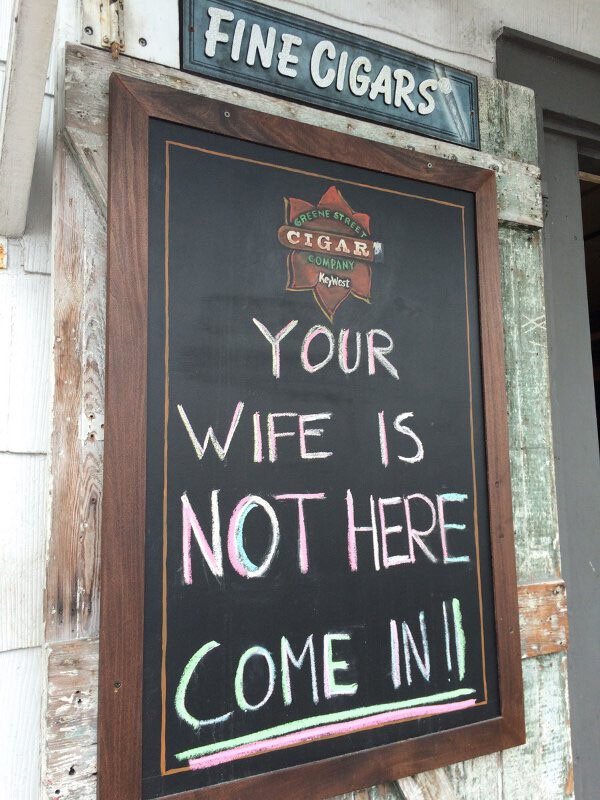 FINE CIGARS
GREENE STREET
CIGAR
COMPANY
KeyWest
YOUR
WIFE IS
NOT HERE
COME IN!!